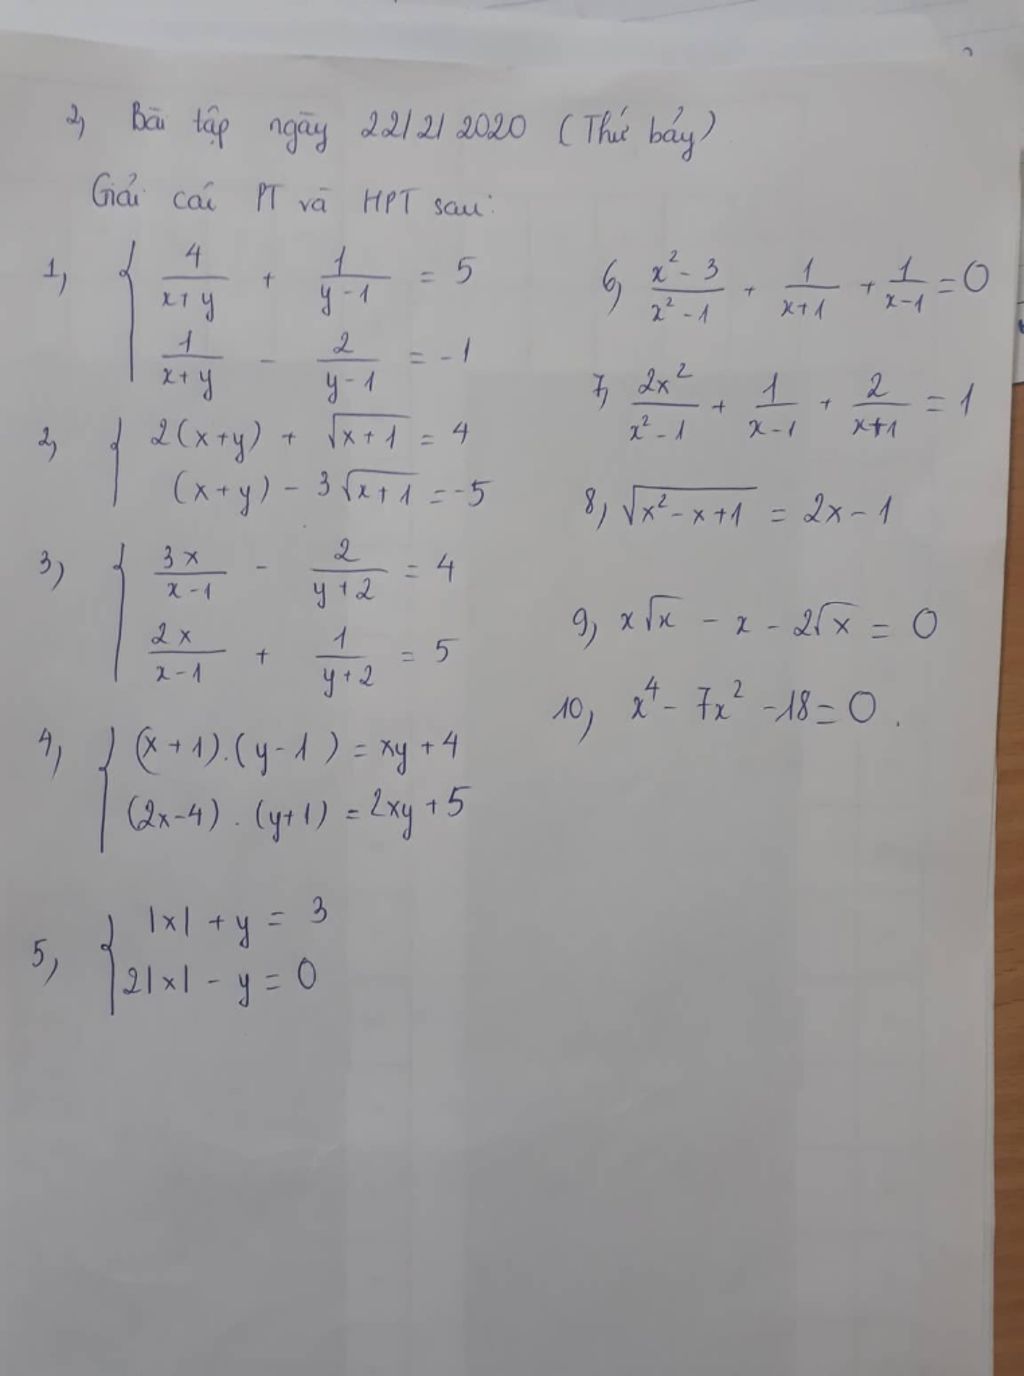 2, Bài tập ngày 22/2/2020 (Thứ bảy)
Giải các PT và HPT sau:
1, { 4/(x+y) + 1/(y-1) = 5
1/(x+y) - 2/(y-1) = -1
2, { 2(x+y) + √(x+1) = 4
(x+y) - 3√(x+1) = -5
3, { 3x/(x-1) - 2/(y+2) = 4
2x/(x-1) + 1/(y+2) = 5
4, { (x+1).(y-1) = xy+4
(2x-4).(y+1) = 2xy+5
5, { |x| + y = 3
2|x| - y = 0
6, (x²-3)/(x²-1) + 1/(x+1) + 1/(x-1) = 0
7, 2x²/(x²-1) + 1/(x-1) + 2/(x+1) = 1
8, √(x²-x+1) = 2x-1
9, x√x - x - 2√x = 0
10, x⁴ - 7x² - 18 = 0.